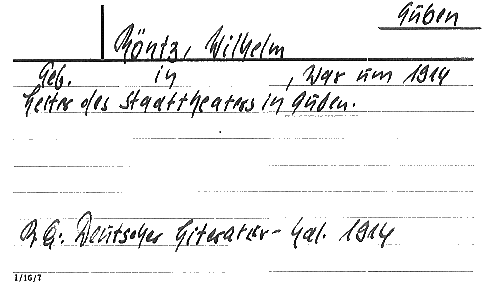 Guben
Röntz, Wilhelm
Geb. in , war um 1914
Leiter des Stadttheaters in Guben.
R. G. Deutscher Literatur-Kal. 1914
1/16/7